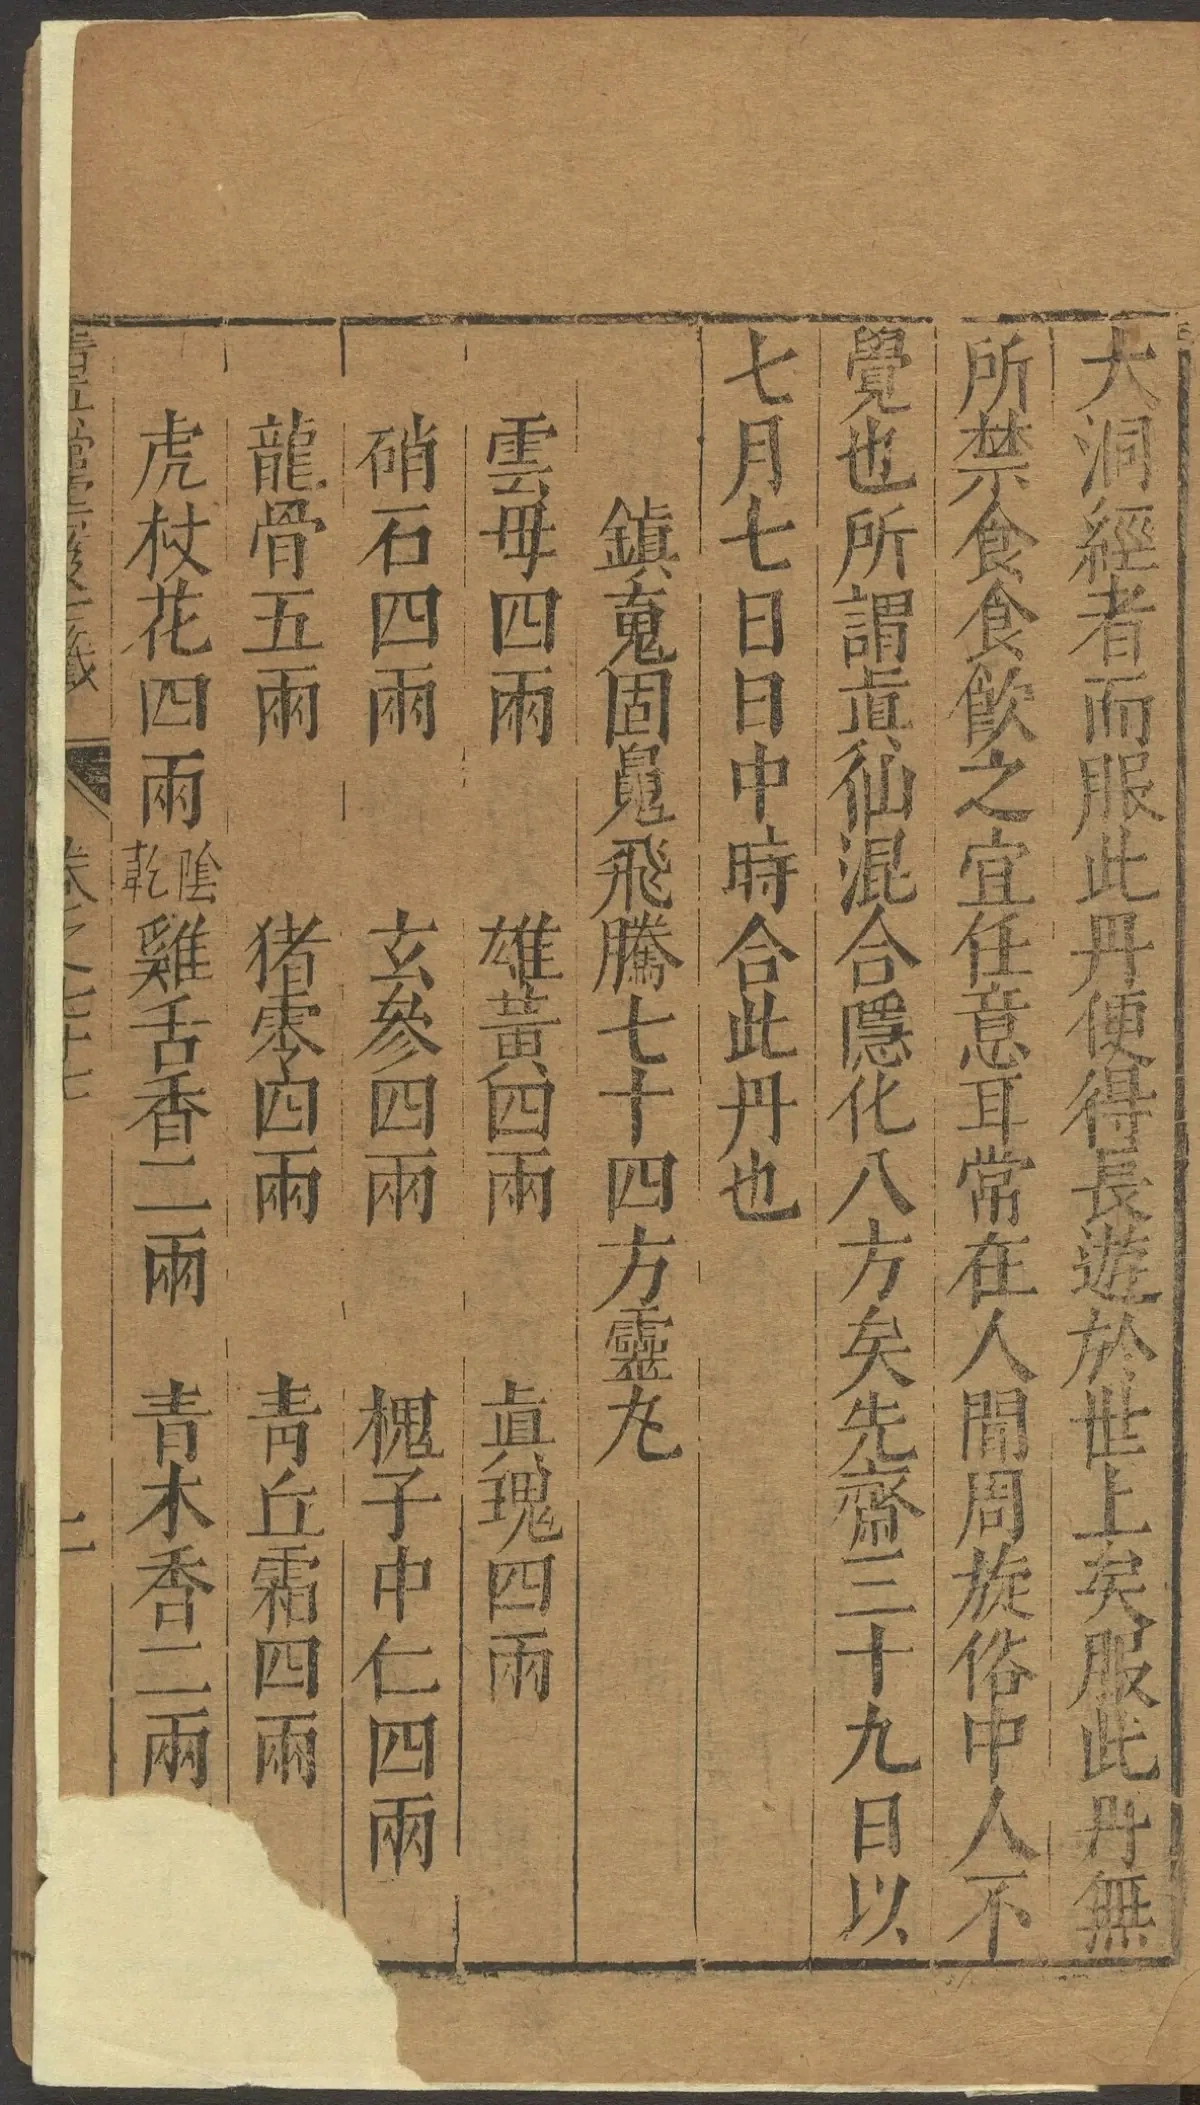 大洞經者而服此丹便得長遊於世上矣服此丹無
所禁食食飮之宜任意耳常在人間周旋俗中人不
覺也所謂眞仙混合隱化八方矣先齋三十九日以
七月七日日中時合此丹也
鎭䰟固鬽飛騰七十四方靈丸
雲母四兩 雄黃四兩 眞瑰四兩
硝石四兩 玄參四兩 槐子中仁四兩
龍骨五兩 猪零四兩 靑丘霜四兩
虎杖花四兩陰乾 雞舌香二兩 青木香二兩
雲笈七籤 卷之七十七 二